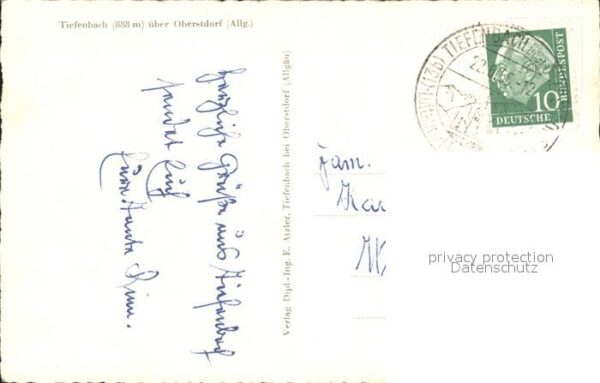 Tiefenbach (888 m) über Oberstdorf (Allg.)
herzliche Grüße aus Tiefenbach
sendet Euch
Eure Tante Linni.
Verlag Dipl.-Ing. E. Atzler, Tiefenbach bei Oberstdorf (Allgäu)
TIEFENBACH
(13b)
10
DEUTSCHE
BUNDESPOST
Fam.
Kar
privacy protection
Datenschutz